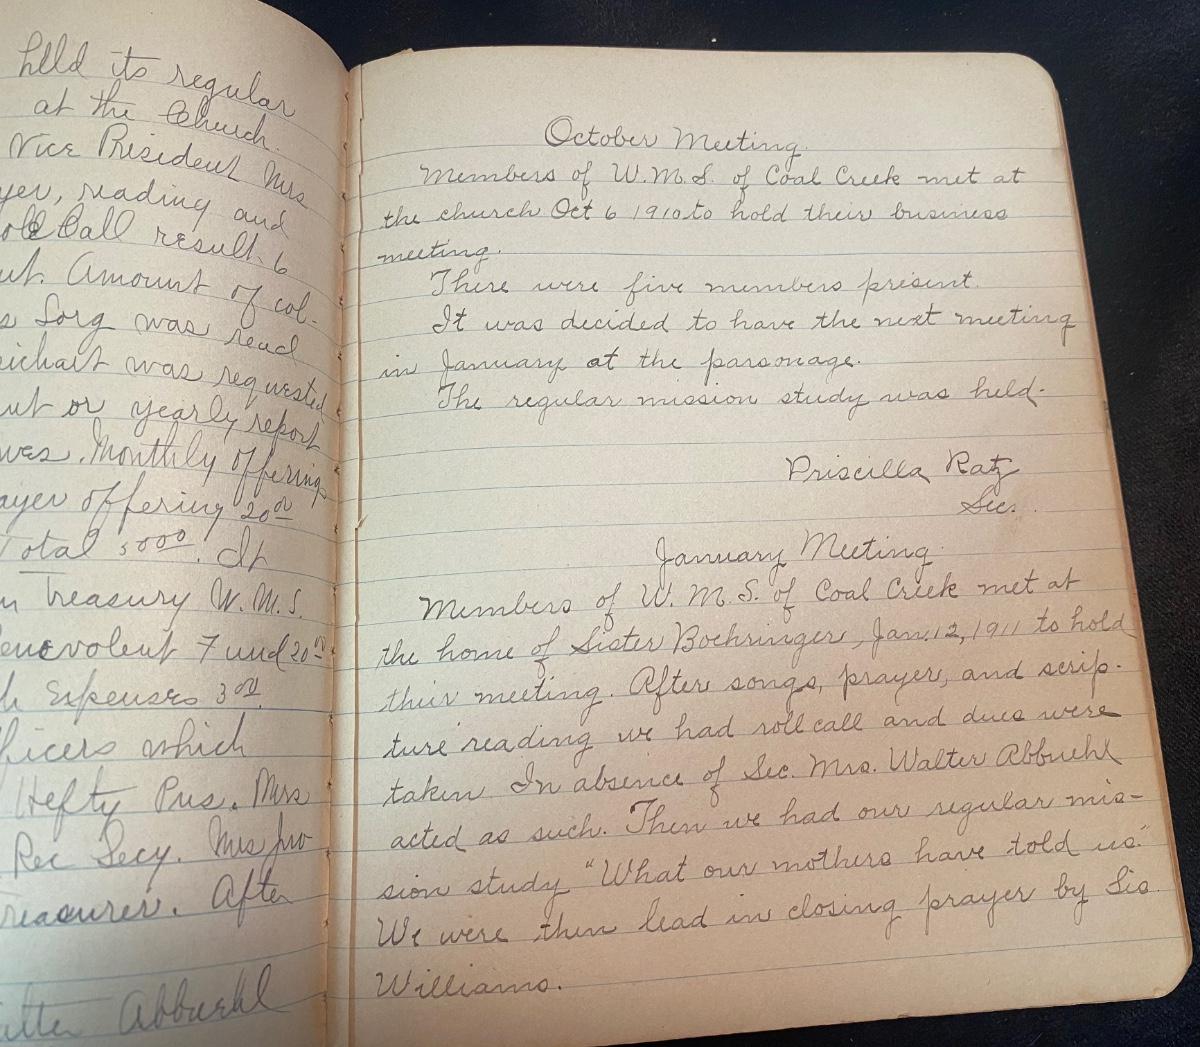 held its regular
at the Church.
Vice President Mrs
reading and
Call result 6
Amount of col-
Sorg was read
was requested
or yearly report
Monthly offerings
offering 20 00
Total 50 00. It
Treasury W. M. S.
Fund 20 00
Expenses 3 00.
which
Hefty Pres. Mrs
Rec Secy. Mrs Jno
Treasurer. After
Abbuehl
October Meeting.
Members of W.M.S. of Coal Creek met at
the church Oct 6 1910 to hold their business
meeting.
There were five members present.
It was decided to have the next meeting
in January at the parsonage.
The regular mission study was held.
Priscilla Ratz
Sec.
January Meeting.
Members of W. M. S. of Coal Creek met at
the home of Sister Boehringer, Jan. 12, 1911 to hold
their meeting. After songs, prayer, and scrip-
ture reading we had roll call and dues were
taken. In absence of Sec. Mrs. Walter Abbuehl
acted as such. Then we had our regular mis-
sion study "What our mothers have told us."
We were then lead in closing prayer by Sis.
Williams.